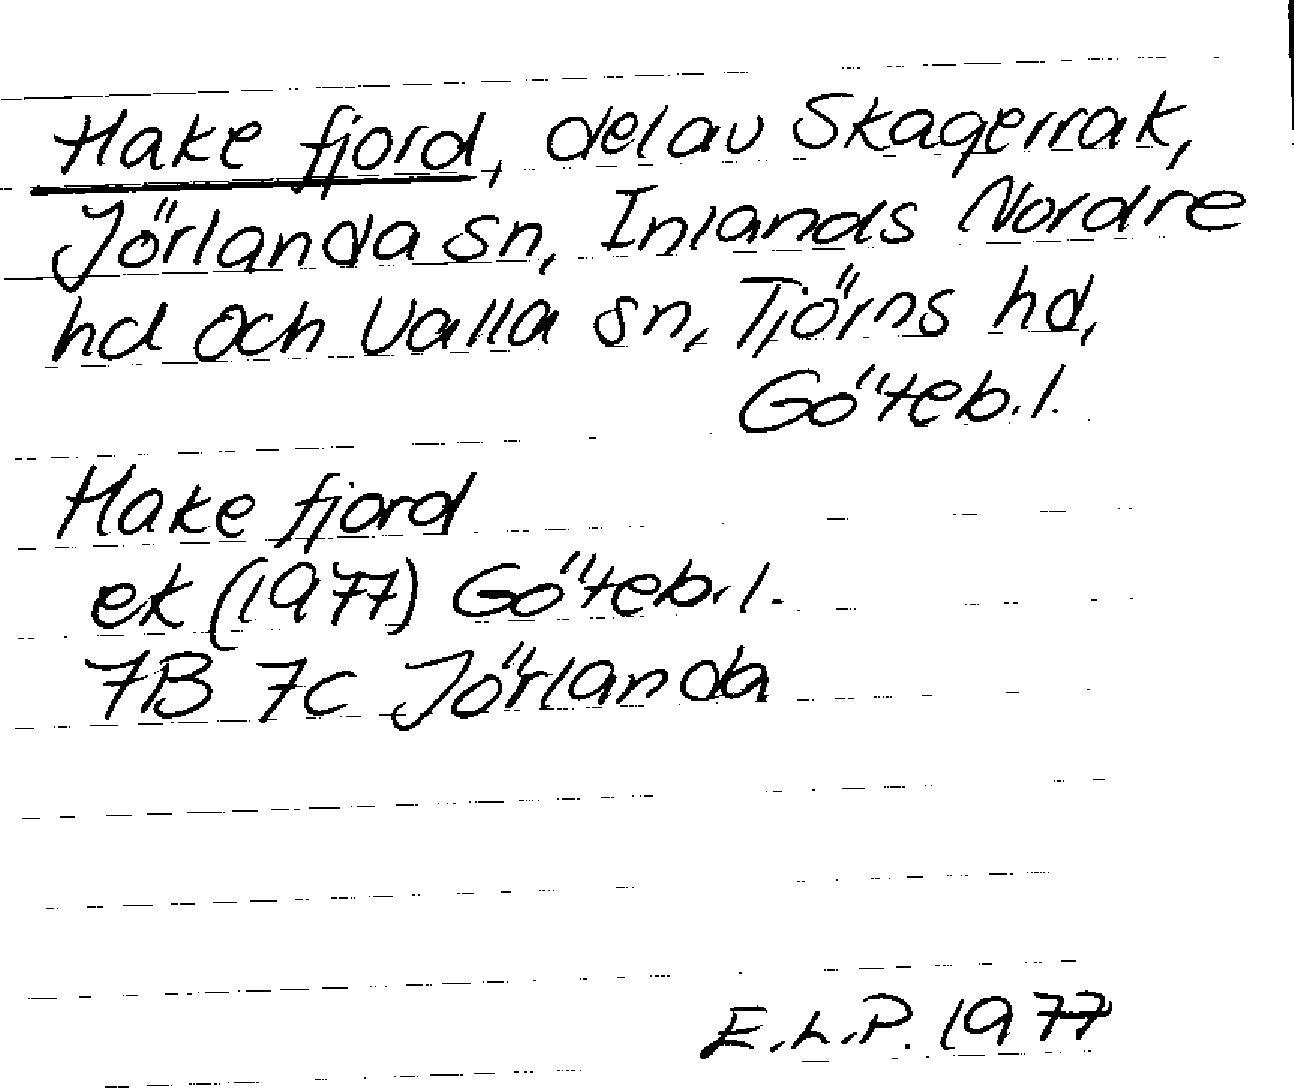 Hake fjord, del av Skagerrak,
Jörlanda sn, Inlands Nordre
hd och Valla sn, Tjörns hd,
Göteb. l.
Hake fjord
ek (1977) Göteb. l.
7B 7c Jörlanda
E.L.P. 1977